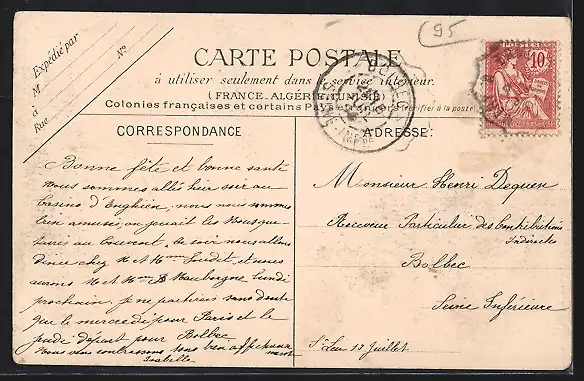 95
Expédié par
M
N°
à
Rue
CARTE POSTALE
à utiliser seulement dans le service intérieur.
(FRANCE, ALGÉRIE, TUNISIE)
Colonies françaises et certains Pays étrangers (vérifier à la poste)
CORRESPONDANCE
ADRESSE:
POSTES
10
BOLBEC
Bonne fête et bonne santé
nous sommes allé hier soir au
Casino d'Enghien, nous nous sommes
bien amusés, on jouait les Mousque-
taires au Couvent, ce soir nous allons
diner chez M et Mme et nous
aurons M et Mme Mauborgne lundi
prochain, je ne partirais sans doute
que le mercredi pour Paris et le
jeudi départ pour Bolbec
Nous vous embrassons tous bien affectueuse
ment
Isabelle
Monsieur Henri Dequen
Receveur Particulier des Contributions
Indirectes
Bolbec
Seine Inférieure
St Leu 13 Juillet